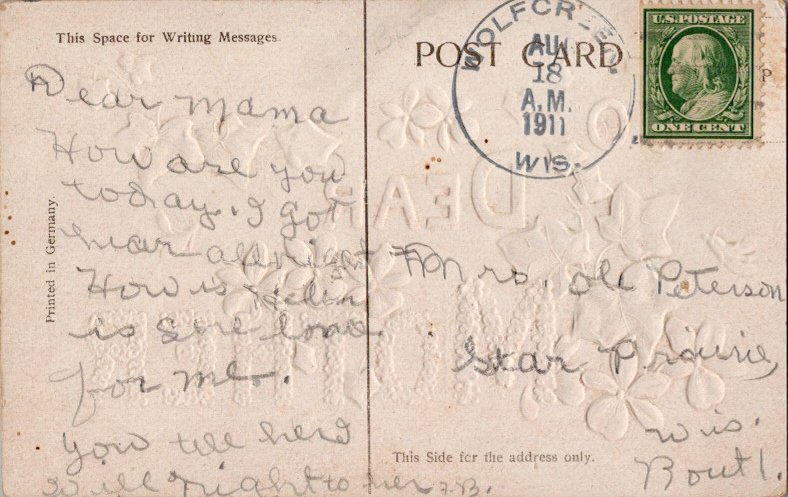 This Space for Writing Messages.
POST CARD
WOLFCREEK
AUG
18
A.M.
1911
WIS.
U.S.POSTAGE
ONE CENT
P
Dear Mama
How are you
today. I got
hear allright
How is
is she
for me.
you tell herd
will right to her F.B.
Printed in Germany.
TO
DEAR
MOTHER
Mrs. Ole Peterson
Star Prairie,
Wis.
Rout 1.
This Side for the address only.